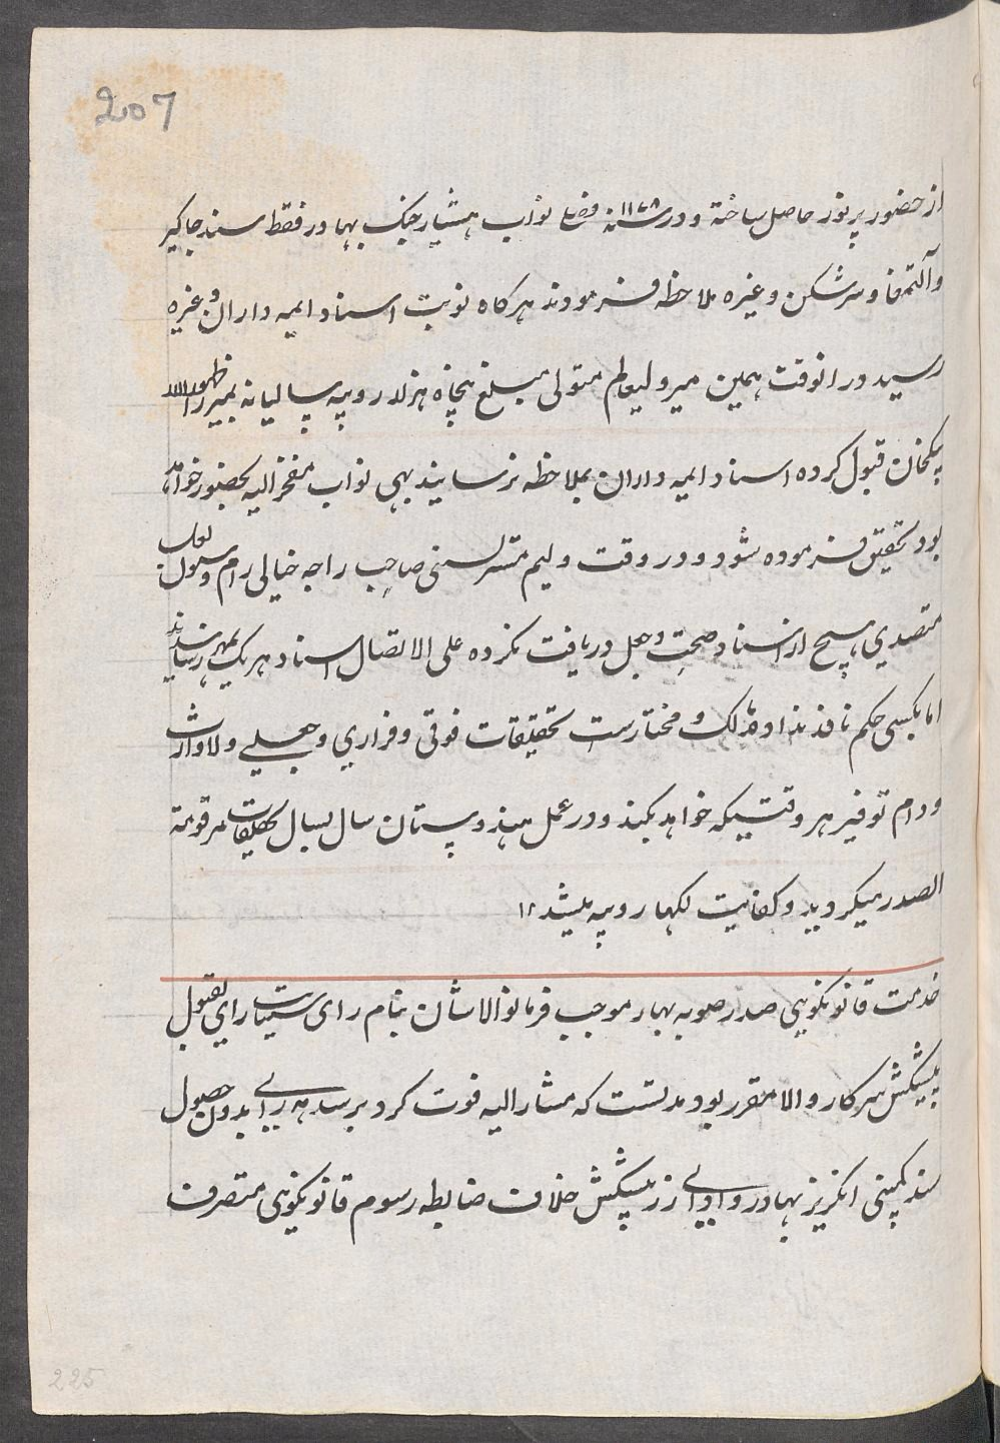 207
از حضور پرنور حاصل ساخته و در سنه ۱۱۷۸ فصلی نواب هشیار جنگ بهادر فقط سند جاگیر
وآلتمغا و سرشکن و غیره ملاحظه فرمودند هرگاه نوبت اسناد ایمه داران و غیره
رسید در انوقت همین میر متولی مبلغ پنجاه هزار روپیه سالیانه بمیرزا
بیکخان قبول کرده اسناد ایمه داران بملاحظه نرسانید بهی نواب مفخر الیه بحضور خواند
بود تحقیق فرموده شود و در وقت ولیم صاحب راجه خیالی رام و
متصدی هیچ از اسناد صحت و جعل دریافت نکرده علی الاتصال اسناد هر یک بمهر رسانیدند
اما بکسی حکم نافذ نداد مالک و مختارست تحقیقات فوتی و فراری و جعلی و لاوارث
و دام توفیر هر وقتیکه خواهد بکند و در عمل هندوستان سال بسال مرقومة
الصدر میکردید و کفایت لکها روپیه میشد ۱۲
خدمت قانونگویی صدر صوبه بهار موجب فرمانوالاشان بنام رای رای بقبول
پیشکش سرکار والا مقرر بود مدتست که مشار الیه فوت کرد برسدهه رای بدون حصول
سند کمپنی انگریز بهادر و ادای زر پیشکش خلاف ضابطه رسوم قانونگویی متصرف
225